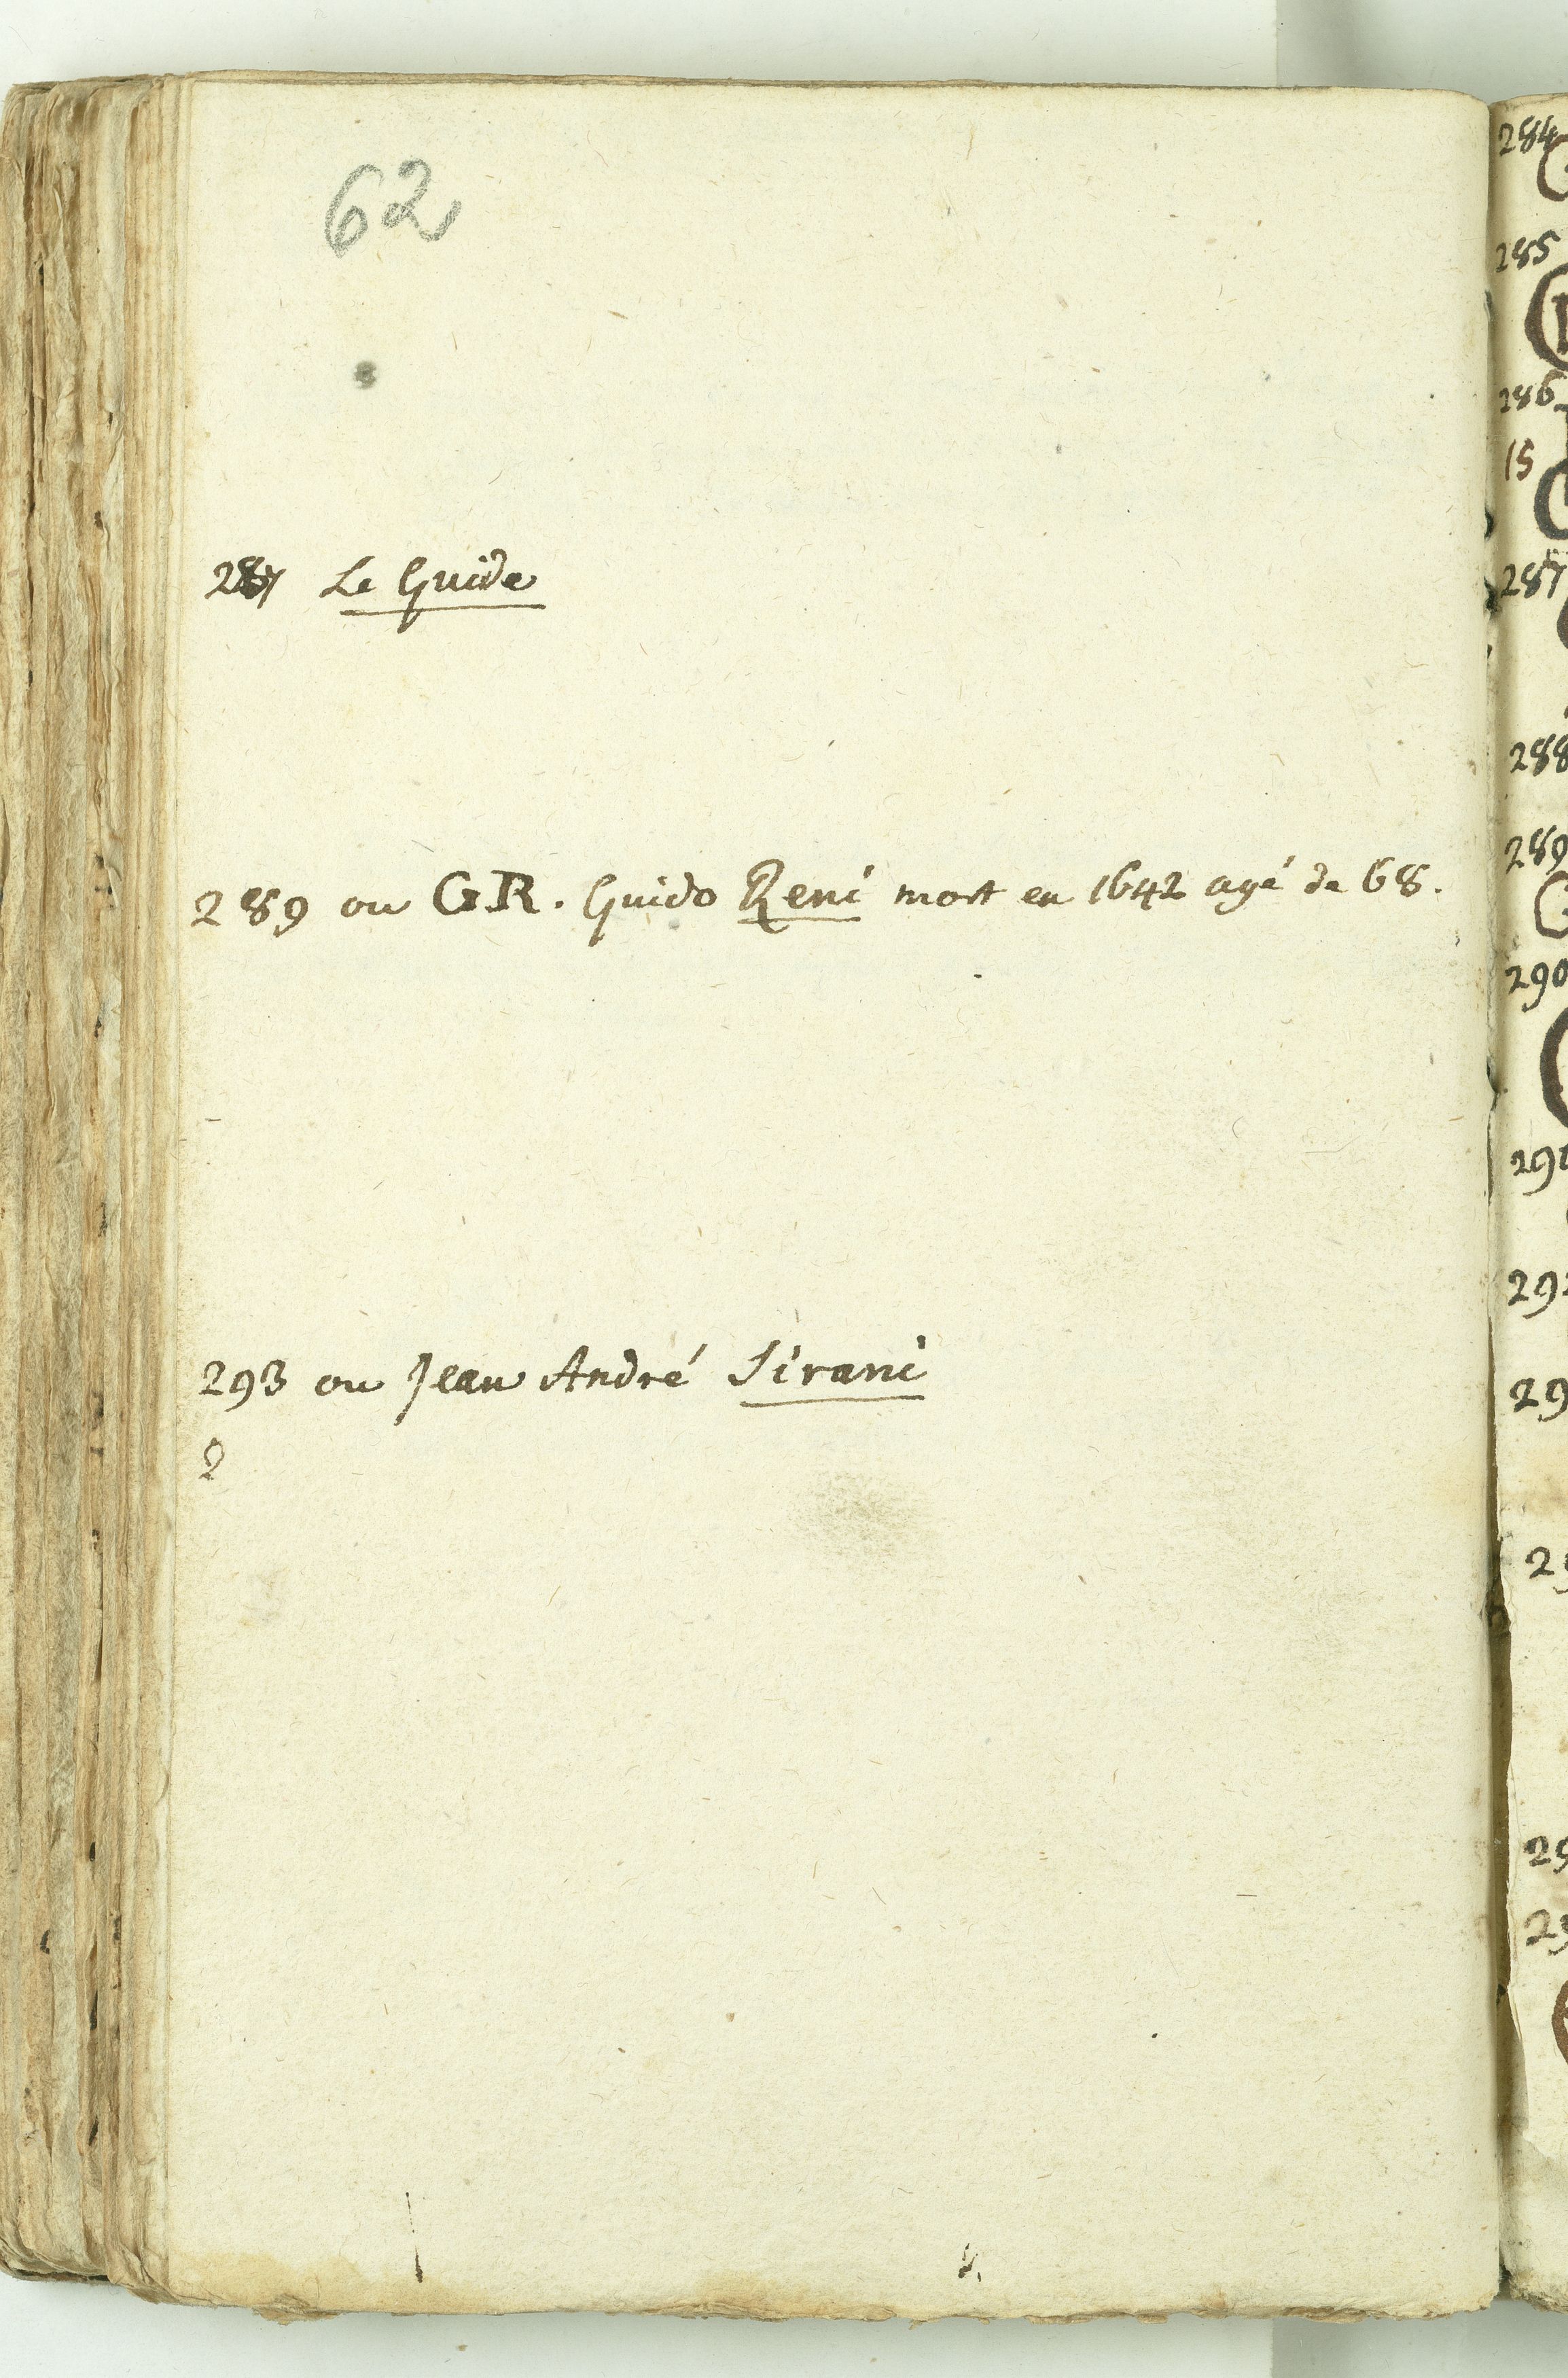 62
287 Le Guide
289 ou GR. Guido Reni mort en 1642 agé de 68.
293 ou Jean André Sirani
2
284
285
286
15
287
288
289
290
291